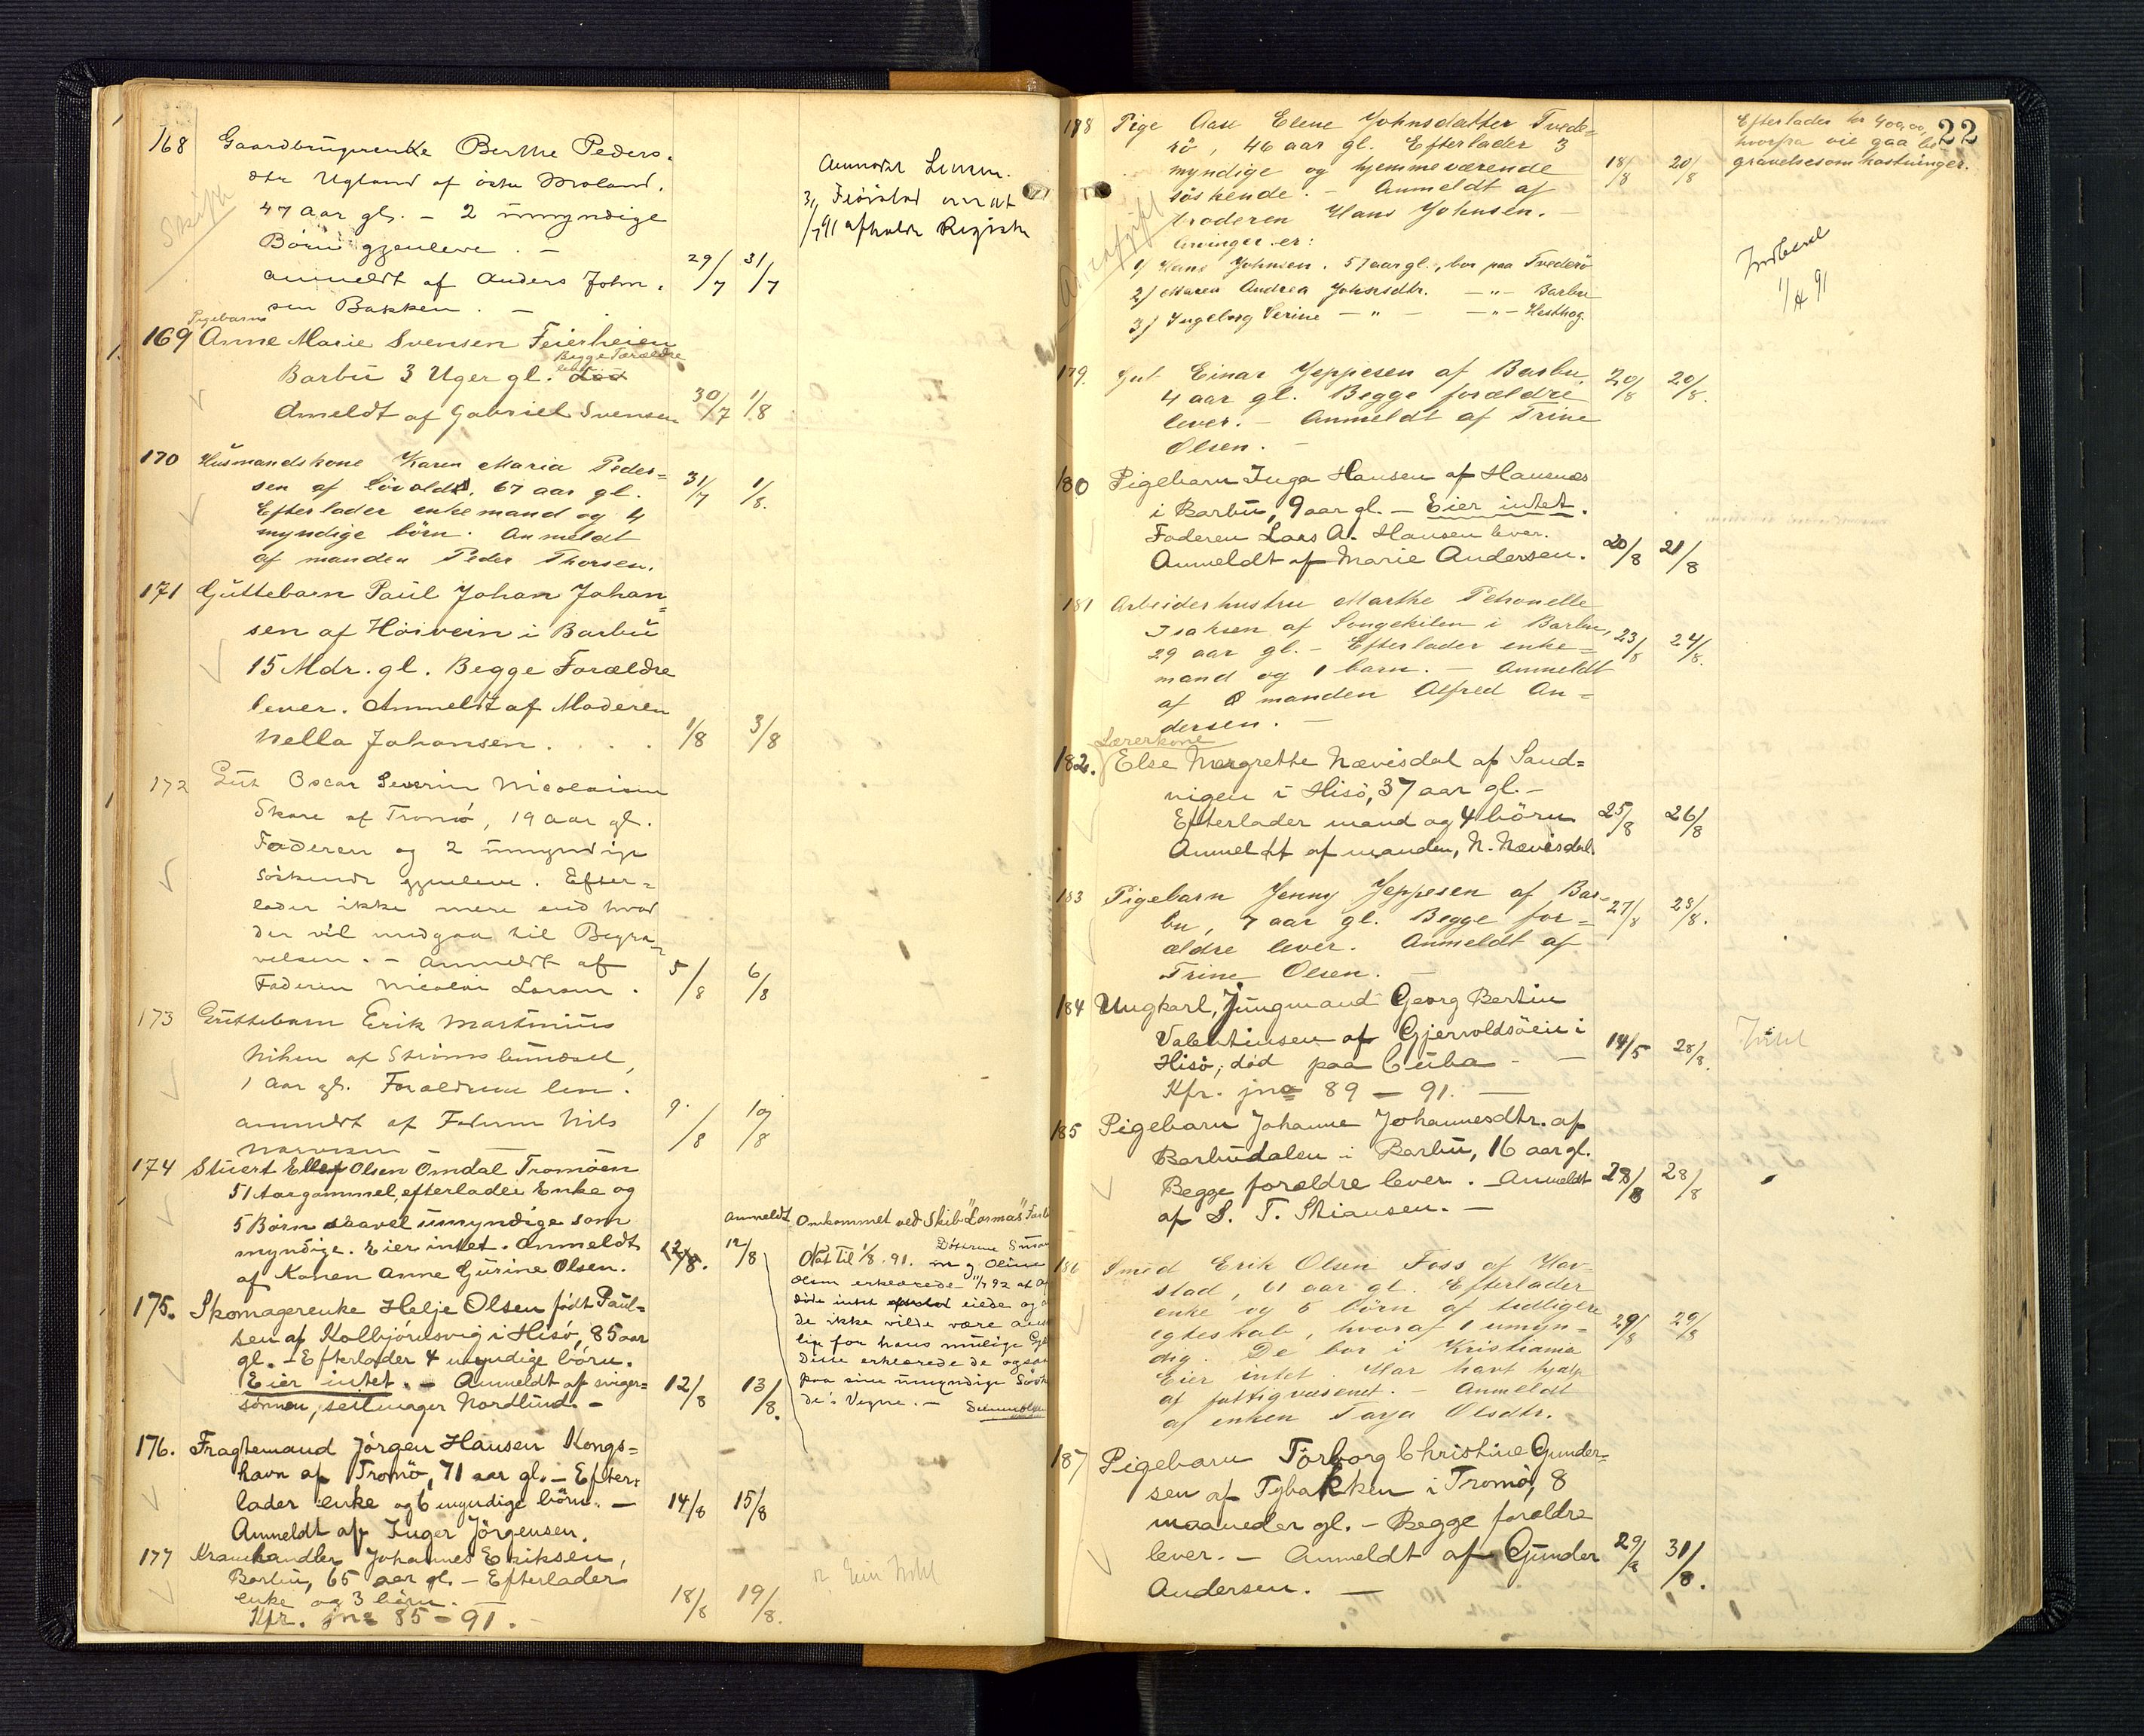 168 Gaardbrugerenke Berthe Peders.
dtr Ugland af östre Moland.
47 aar gl. - 2 ümyndige
Börn gjenleve. -
anmeldt af Anders John.
sen Bakken. -
29/7 31/7
Skifte
Anmodet
3/7 91 afholdt Registr
Pigebarn
169 Anne Marie Svensen Feierheien
Begge Forældre
Barbü 3 Uger gl. lever
Anmeldt af Gabriel Svensen
30/7 1/8
170 Husmandskone Karen Maria Peder=
sen af Lövold, 67 aar gl.
Efterlader enkemand og 4
myndige börn. Anmeldt
af manden Peder Thorsen.
31/7 1/8.
171 Güttebarn Paül Johan Johan=
sen af Höivein i Barbü
15 Mdr. gl. Begge Forældre
lever. Anmeldt af Moderen
Nella Johansen. . . .
1/8 3/8
172 Güt Oscar Severin Nicolaisen
Skare af Tromö, 19 aar gl.
Faderen og 2 ümyndige
Söskende gjenleve. Efter=
lader ikke mere end hvad
der vil medgaa til Begra=
velsen. - anmeldt af
Faderen Nicolai Larsen.
5/8 6/8
173 Güttebarn Erik Martinius
Nilsen af Strömsbuneset,
1 Aar gl. Forældrene leve.
anmeldt af Faderen Nils
9/8 10/8
174 Stüert Ellef Olsen Omdal Tromöen
51 Aar gammel, efterlader Enke og
5 Börn saavel ümyndige som
myndige. Eier intet. Anmeldt
af Konen Anne Gürine Olsen.
12/8. anmeldt 12/8
Omkommet ved Skib "Lorma"
Nat til 1/8. 91. Döttrene
og Oline
Olsen erklærede 11/7 92 at
döde intet eiede og
de ikke vilde være
lige for hans mulige
Disse erklærede de ogsaa
paa sine ümyndige
de's Vegne. -
175. Skomagerenke Helje Olsen födt Paül=
sen af Kolbjörnsvig i Hisö, 85 aar
gl. - Efterlader 4 myndige börn.
Eier intet. - Anmeldt af sviger=
sönnen, seilmager Nordlünd. -
12/8 13/8.
176. Fragtemand Jörgen Hansen Kongs=
havn af Tromö, 71 aar gl. - Efter=
lader enke og 6 myndige börn. -
Anmeldt af Inger Jörgensen.
14/8 15/8
177 Kramhandler Johannes Eriksen,
Barbü, 65 aar gl. - Efterlader
enke og 3 börn.
Kfr. jno 85 - 91. -
18/8 19/8.
22
178 Pige Aase Elene Johnsdatter Tvede=
rö, 46 aar gl. Efterlader 3
myndige og hjemmeværende
söskende. - Anmeldt af
broderen Hans Johnsen. -
Arvinger er:
1/ Hans Johnsen. 57 aar gl., bor paa Tvederö
2/ Maren Andrea Johnsdtr. - " - Barbu
3/ Ingeborg Serine - " - - " - Hesthag.
18/8 20/8
Efterlader kr 400,00,
hvorfra vil gaa be=
gravelsesomkostninger.
Arveafgift
179. Gut Einar Jeppesen af Barbu,
4 aar gl. Begge forældre
lever. - Anmeldt af Trine
Olsen. -
20/8 20/8.
180 Pigebarn Inga Hansen af Hausnæs
i Barbü, 9 aar gl. - Eier intet.
Faderen Lars A. Hansen lever.
Anmeldt af Marie Andersen.
20/8 21/8
181 Arbeiderhustru Marthe Petronelle
Isaksen af Songekilen i Barbu,
29 aar gl. - Efterlader enke=
mand og 1 barn. - Anmeldt
af manden Alfred An=
dersen. -
23/8 24/8.
Lærerkone
182. Else Margrethe Nævisdal af Sand=
vigen i Hisö, 37 aar gl. -
Efterlader mand og 4 börn
Anmeldt af manden, N. Nævisdal.
25/8 26/8
183 Pigebarn Jenny Jeppesen af Bar=
bu, 7 aar gl. Begge for=
ældre lever. Anmeldt af
Trine Olsen. -
27/8 28/8.
184 Ungkarl, Jüngmand Georg Bertin
Valentinsen af Gjervoldsöen i
Hisö; död paa Cüba - -
Kfr. jno 89 - 91. -
14/5 28/8.
185 Pigebarn Johanne Johannesdtr. af
Barbüdalen i Barbü, 16 aar gl.
Begge forældre lever. - Anmeldt
af S. T. Stiansen. -
28/8 28/8
186 Smed Erik Olsen Foss af Hav=
stad, 61 aar gl. Efterlader
enke og 5 börn af tidligere
egteskab, hvoraf 1 umyn=
dig. De bor i Kristiania
Eier intet. Har havt hjælp
af fattigvæsenet. - Anmeldt
af enken Tarja Olsdtr.
29/8 29/8
187 Pigebarn Torborg Christine Gunder=
sen af Tybakken i Tromö, 8
maaneder gl. - Begge forældre
lever. - Anmeldt af Gunder
Andersen. -
29/8 31/8.